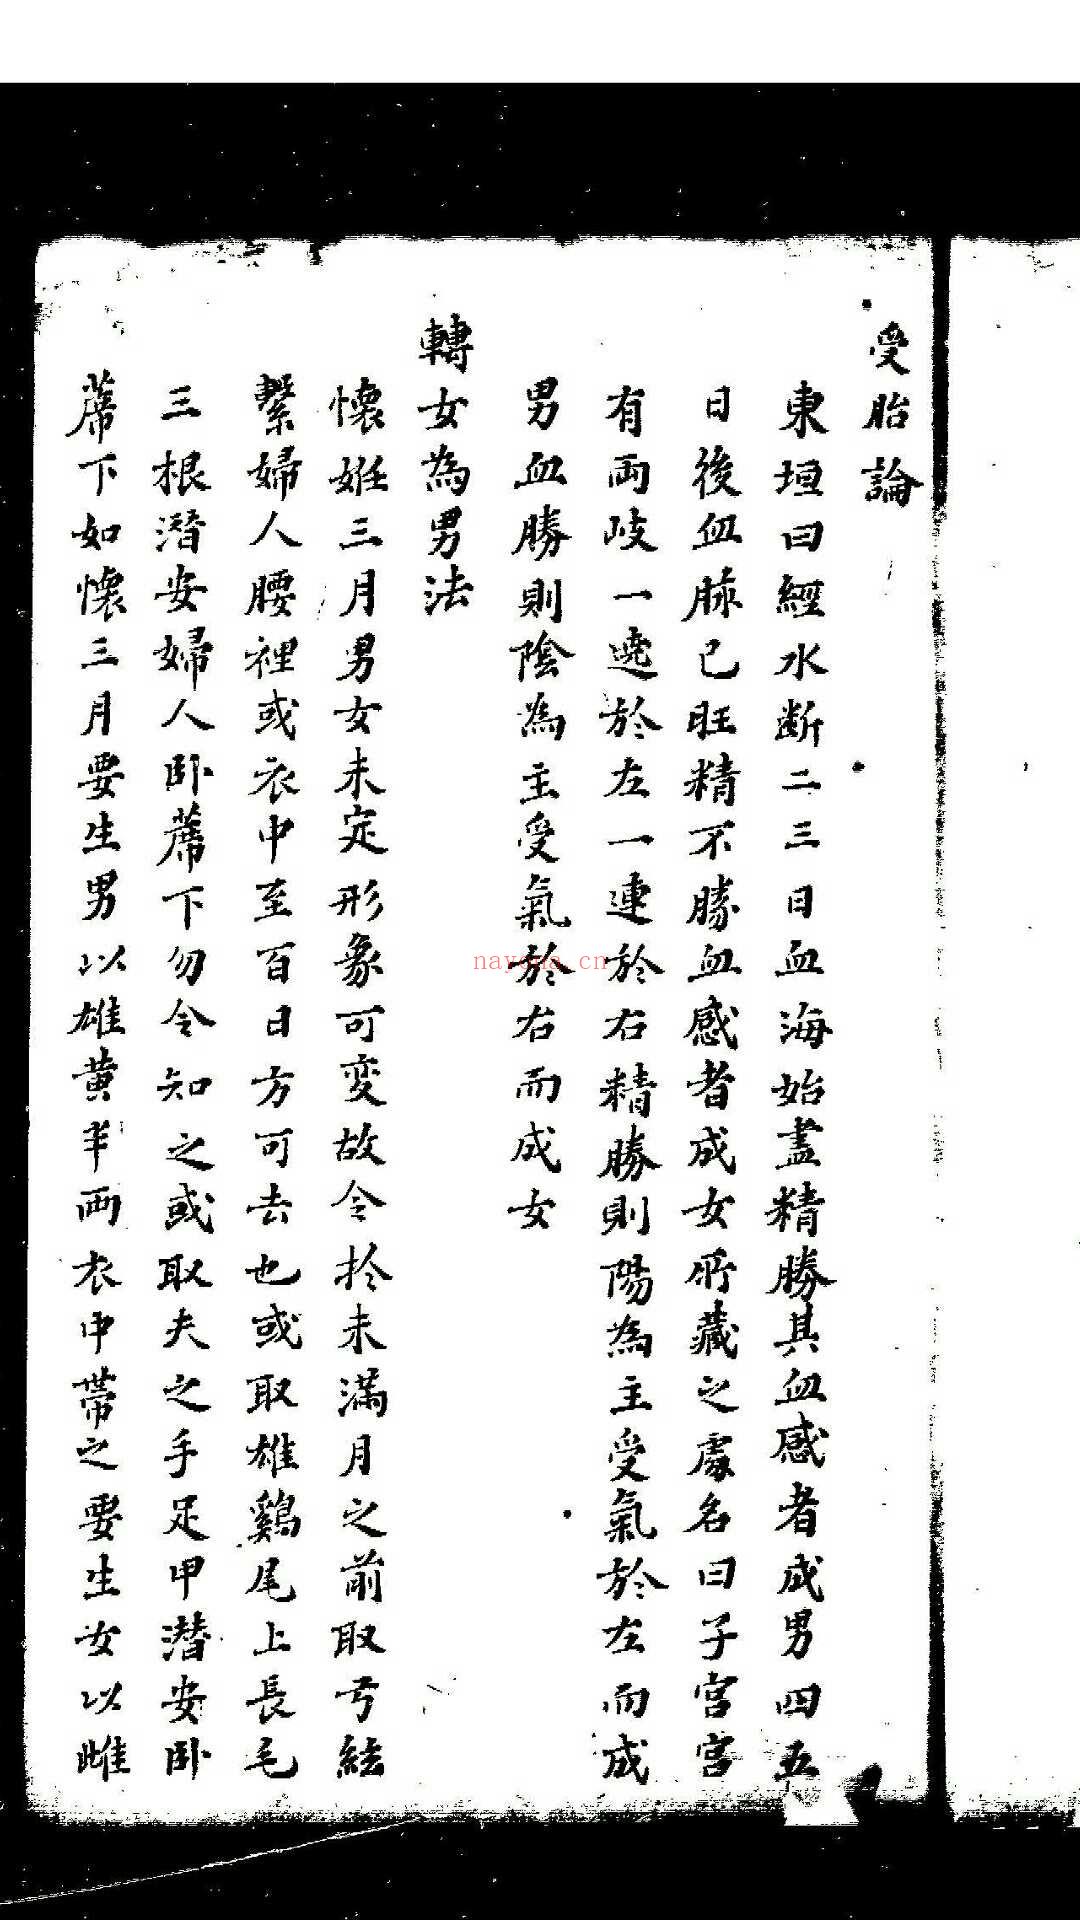 受胎論
東垣曰經水断二三日血海始盡精勝其血感者成男四五
日後血脉已旺精不勝血感者成女所藏之處名曰子宮宮
有兩岐一遶於左一連於右精勝則陽為主受氣於左而成
男血勝則陰為主受氣於右而成女
轉女為男法
懷姙三月男女未定形象可变故令扵未滿月之前取弓絃
繫婦人腰裡或衣中至百日方可去也或取雄鷄尾上長毛
三根潛安婦人卧蓆下勿令知之或取夫之手足甲潜安卧
蓆下如懷三月要生男以雄黄半兩衣中帶之要生女以雌
nayona.cn